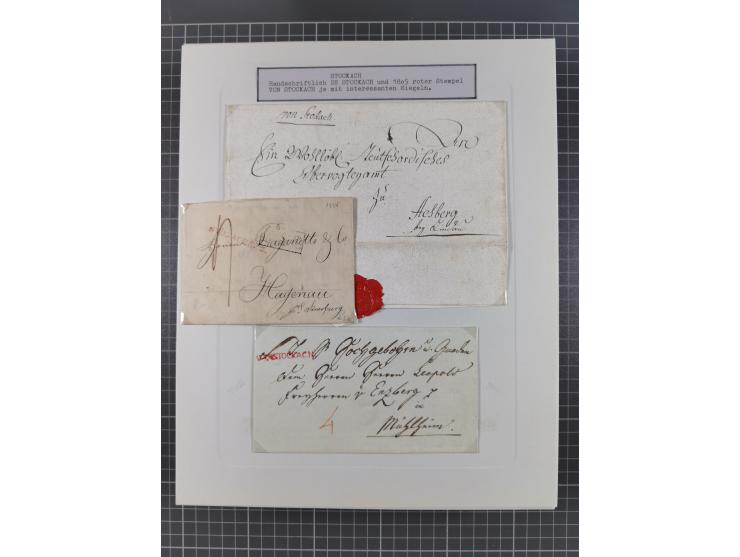 STOCKACH
Handschriftlich DE STOCKACH und 1805 roter Stempel
VON STOCKACH je mit interessanten Siegeln.
von Stokach
An
Ein Wohllöbl. Teutschordisches
Obervogteyamt
zu
Achberg
bey Lindau
Herren & Co
Hagenau
STOCKACH
Hochgebohrn u. Gnaden
dem Herrn Herrn Leopold
Freyherrn v Enzberg
in
4
Mühlheim.